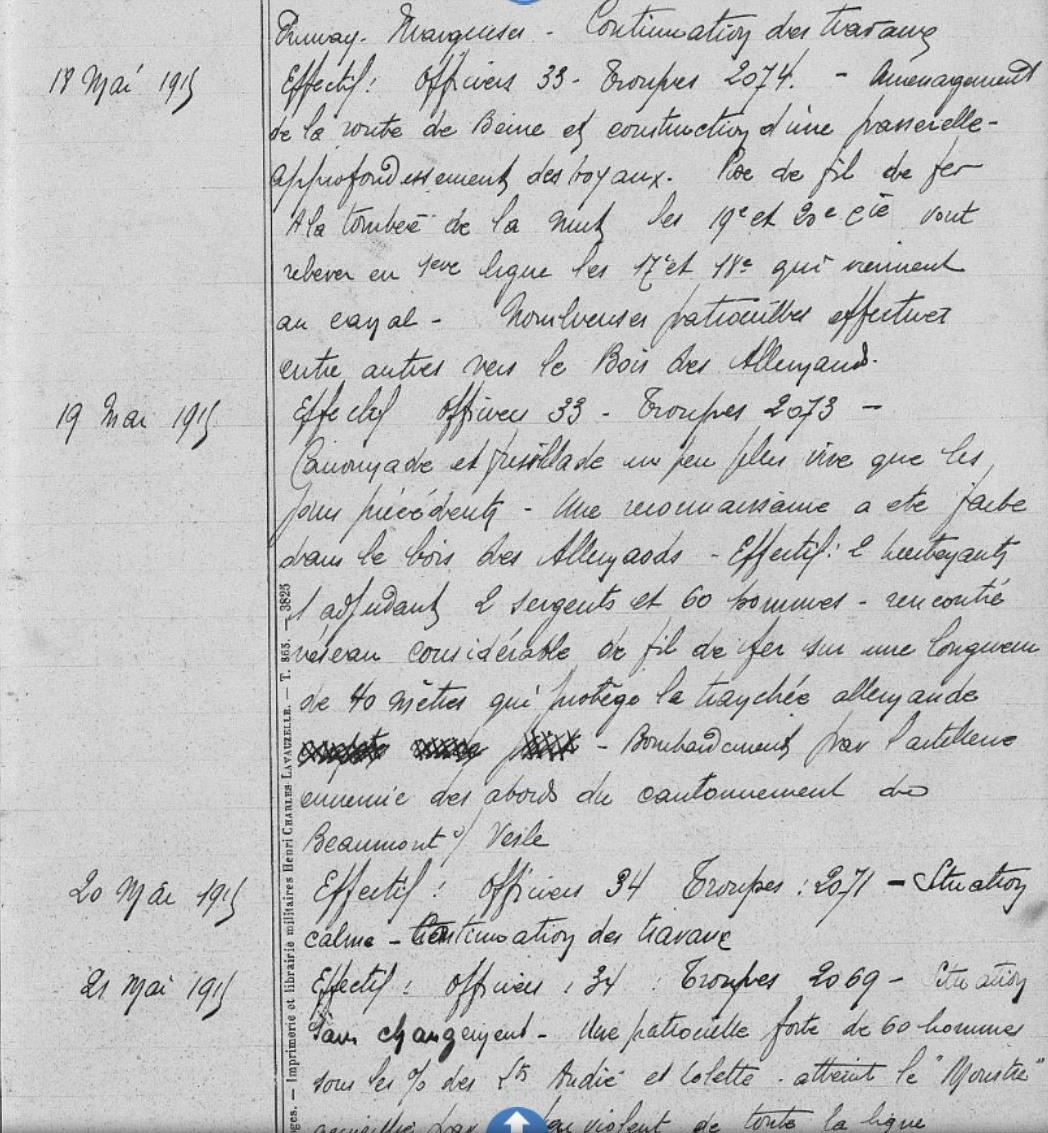 Prunay. Marquises - Continuation des travaux
18 Mai 1915 Effectif : Officiers 33 - Troupes 2074. - Aménagement
de la route de Beine et construction d'une passerelle -
approfondissement des boyaux. Pose de fil de fer
A la tombée de la nuit les 19e et 20e Cie vont
relever en 1ere ligne les 17e et 18e qui viennent
au canal - Nombreuses patrouilles effectuées
entre autres vers le Bois des Allemands.
19 Mai 1915 Effectif Officiers 33 - Troupes 2073 -
Canonnade et fusillade un peu plus vive que les
jours précédents - Une reconnaissance a été faite
dans le bois des Allemands - Effectif : 2 lieutenants
1 adjudant 2 sergents et 60 hommes - rencontré
réseau considérable de fil de fer sur une longueur
de 40 mètres qui protège la tranchée allemande
- Bombardement par l'artillerie
ennemie des abords du cantonnement de
Beaumont s/ Vesle
20 Mai 1915 Effectif : Officiers 34 Troupes : 2071 - Situation
calme - Continuation des travaux
21 Mai 1915 Effectif : Officiers : 34 : Troupes 2069 - Situation
sans changement - Une patrouille forte de 60 hommes
sous les % des Lts André et Colette . atteint le "Monstre"
violent de toute la ligne
ges. — Imprimerie et librairie militaires Henri CHARLES LAVAUZELLE. — T. 863. — 3825